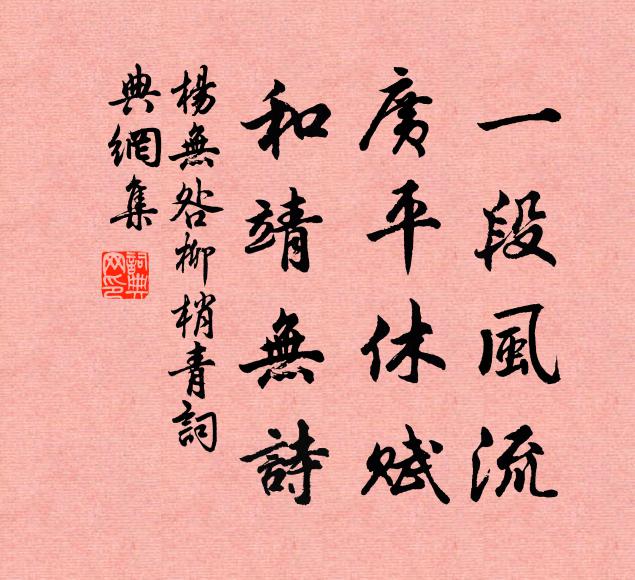 一段風流
廣平休賦
和靖無詩
楊無咎柳梢青詞
典網集
詞典網印